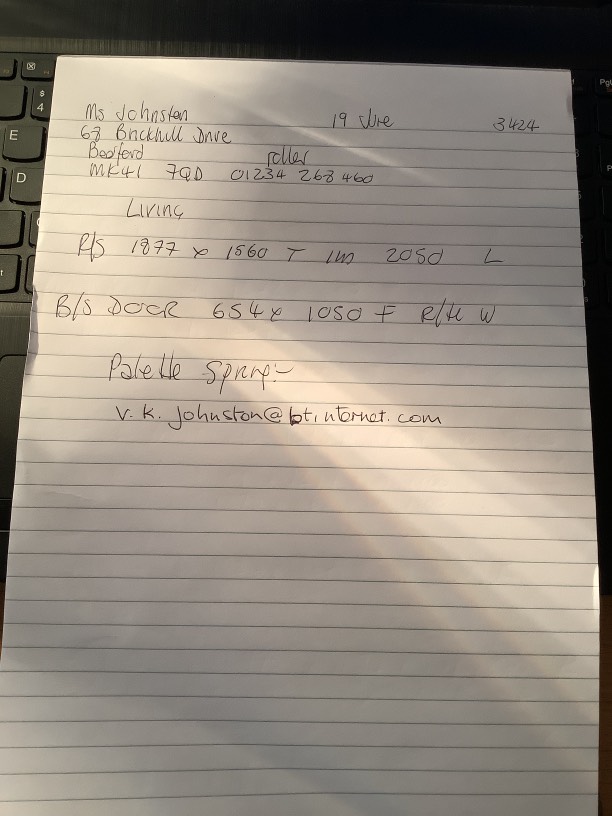 Ms Johnston 19 June 3424
63 Brickhill Drive
Bedford roller
MK41 7QD 01234 268 460
Living
R/S 1877 x 1560 T 1m 2050 L
B/S DOOR 654 x 1050 F R/H W
Palette Spring:-
v.k.johnston@btinternet.com